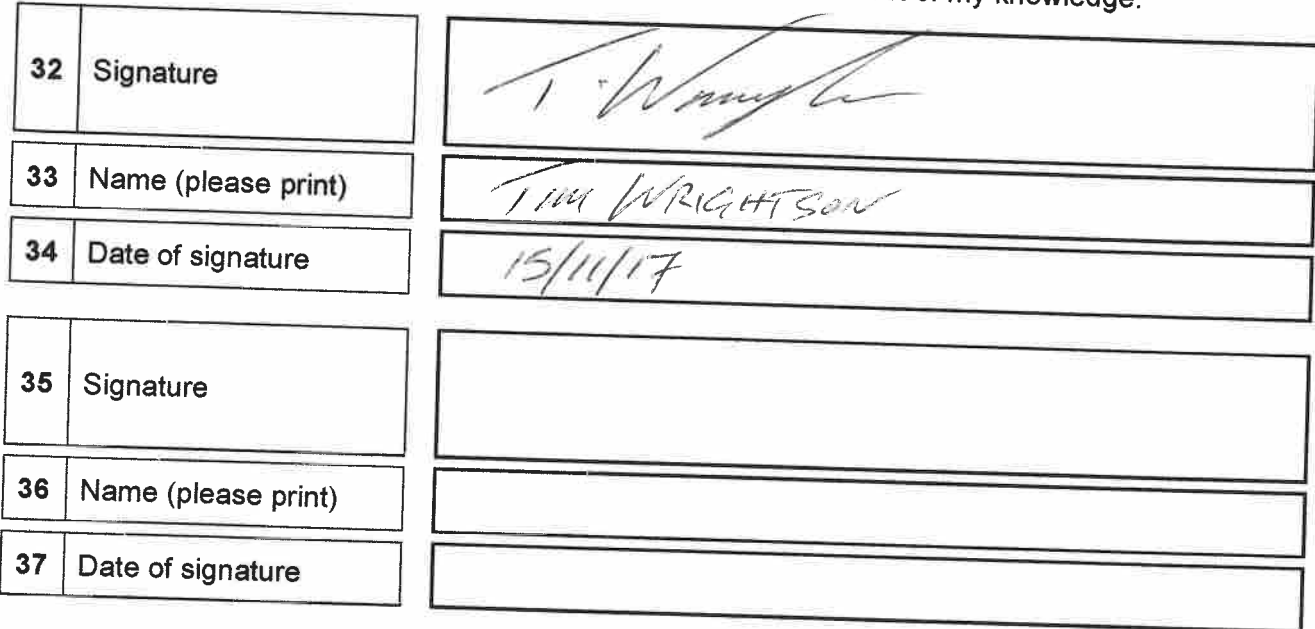 my knowledge.
32 Signature
33 Name (please print) TIM WRIGHTSON
34 Date of signature 15/11/17
35 Signature
36 Name (please print)
37 Date of signature